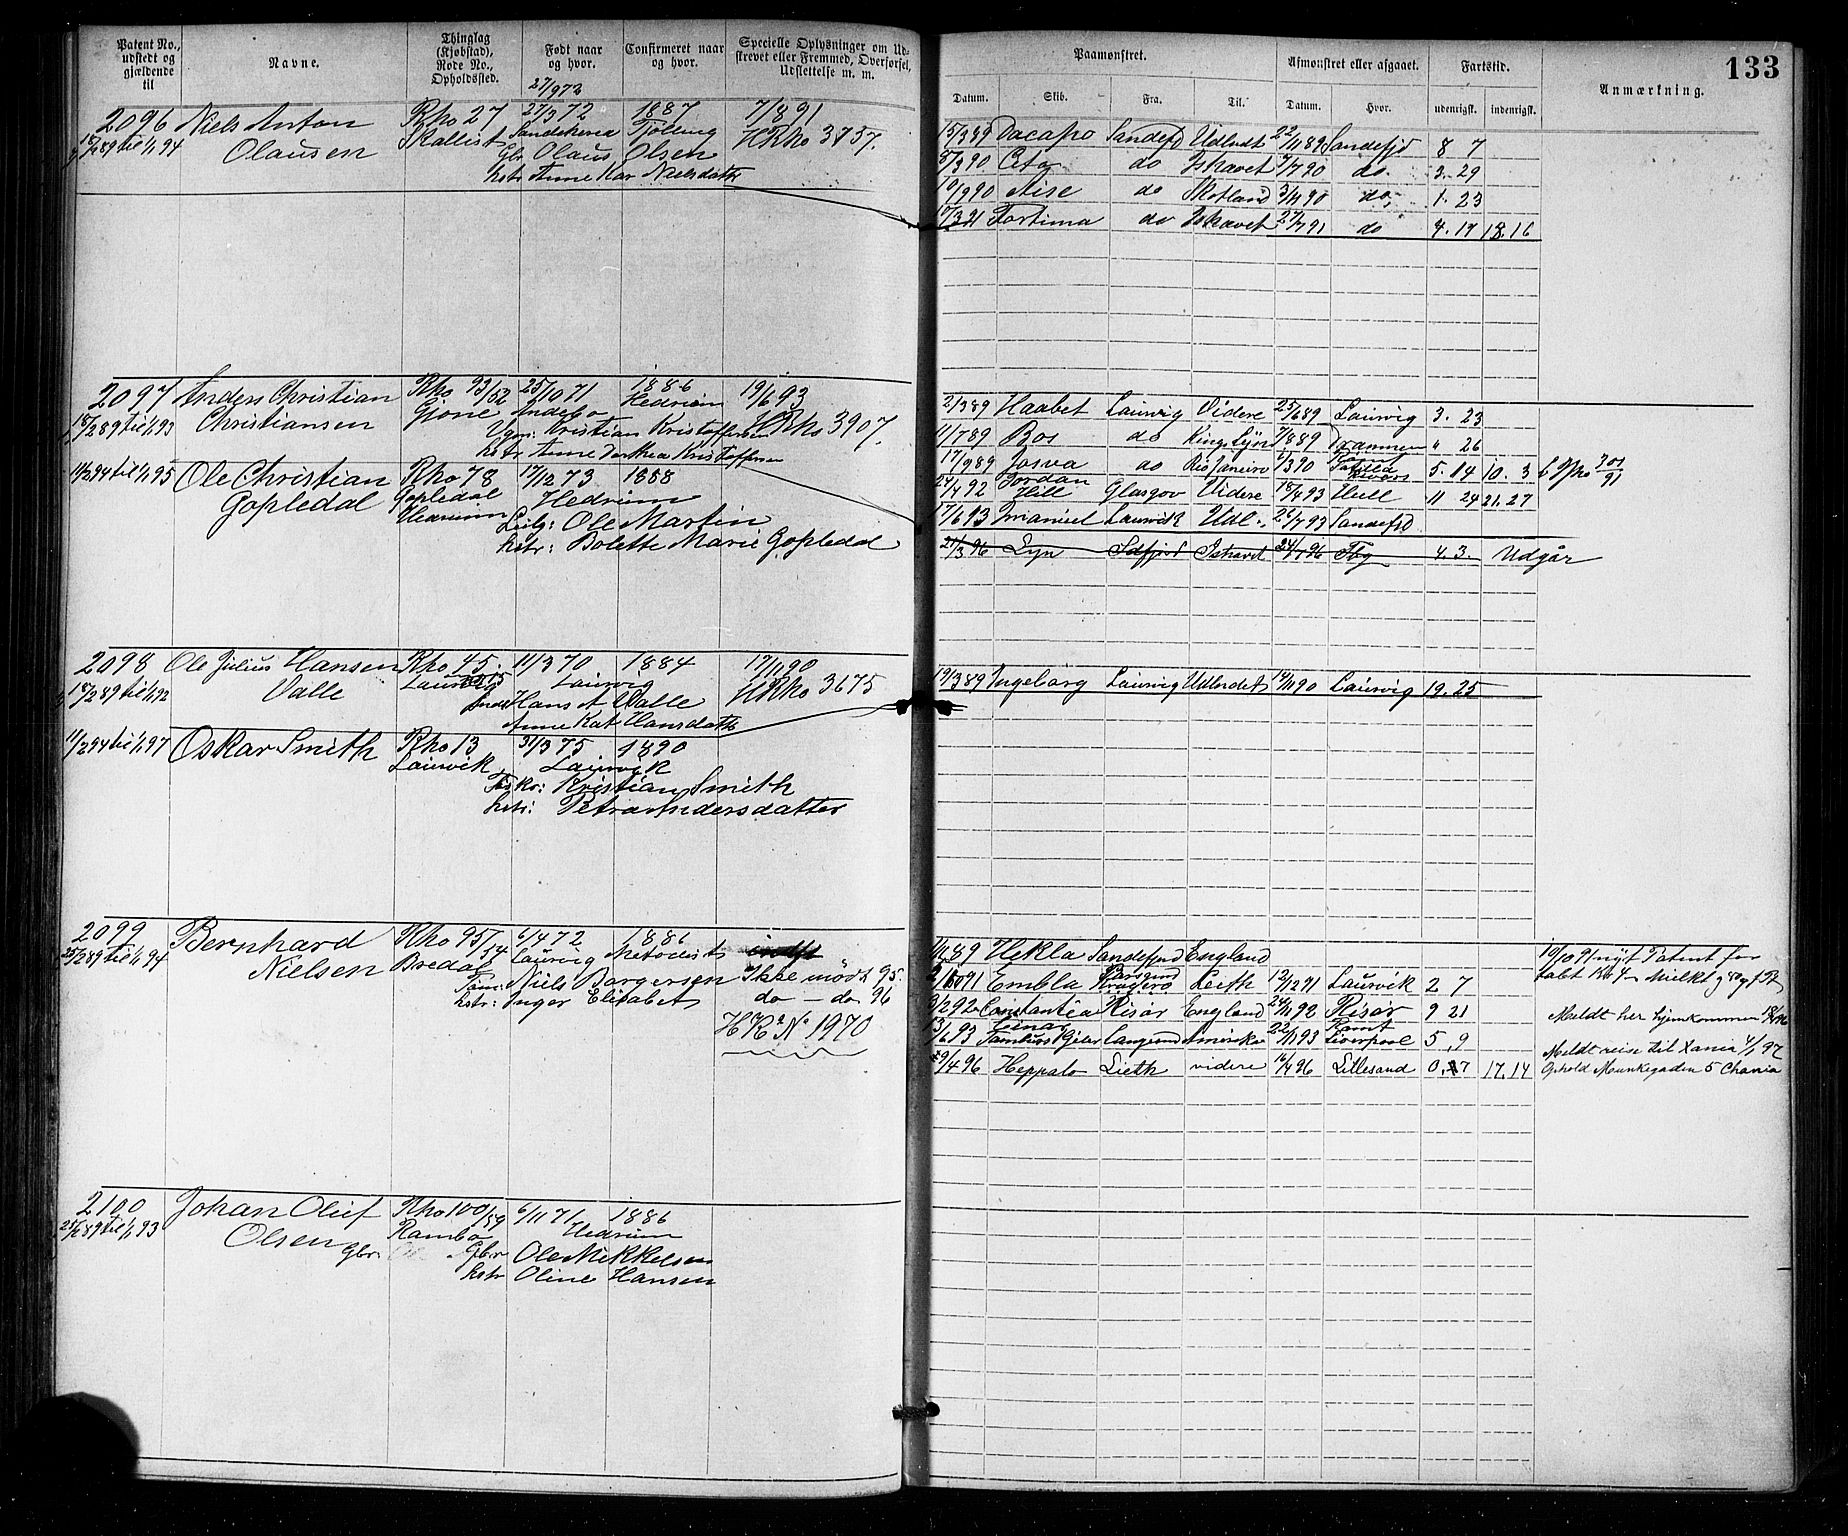 133
Patent No., udstedt og gjældende til
Navne.
Thinglag (Kjøbstad), Rode No., Opholdssted.
Født naar og hvor.
Confirmeret naar og hvor.
Specielle Oplysninger om Udstrevet eller Fremmed, Overførsel, Udslettelse m. m.
Paamønstret.
Afmønstret eller afgaaet.
Fartstid.
Anmærkning.
Datum. Skib. Fra. Til. Datum. Hvor. udenrigsk. indenrigsk.
27/9 72
2096 Niels Anton Rho 27 27/3 72 1887 7/8 91
til 1/1 94 Olausen Skallist Sandeherred Tjølling HRho 3737.
Gbr. Olaus Olsen
hstr Anne Kar Nielsdatter
15/3 89 Dacapo Sandefd Udlndt 22/11 89 Sandefjd 8 7
5/3 90 Ceto do Ishavet 9/7 90 do. 3. 29
10/9 90 Aise do Skotland 3/11 90 do. 1. 23
17/3 91 Fortuna do Ishavet 27/7 91 do 4. 17 18. 16
2097 Anders Christian Rho 93/52 25/10 71 1886 19/6 93
18/2 89 til 1/1 93 Christiansen Gjone Andebo Hedrum HRho 3907.
Kristian Kristoffersen
hstr Anne Dorthea Kristoffersen
21/3 89 Haabet Laurvig Videre 25/6 89 Laurvig 3. 23
11/7 89 Bos do Kings Lynn 7/8 89 Drammen " 26
17/9 89 Josva do Rio Janeiro 6/3 90 5. 14 10. 3
24/4 92 Jordan Hill Glasgov Videre 18/4 93 Hull 11 24 21. 27
17/6 93 Imanuel Laurvik Udl. 26/7 93 Sandefjd
11/2 94 til 1/1 95 Ole Christian Rho 78 17/12 73 1888
Gopledal Gopledal Hedrum
Hedrum Leilg: Ole Martin
hstr: Bolette Marie Gopledal
21/3 96 Lyn Sdfjord Ishavet 24/7 96 Tbg 4. 3. Udgår
2098 Ole Julius Hansen Rho 45. 11/3 70 1884 17/11 90
18/2 89 til 1/1 92 Valle Laurvig Laurvig HRho 3675
Hans A Valle
Anne Kat Hansdatter
19/3 89 Ingeborg Laurvig Udlndet 14/11 90 Laurvig 19. 25
11/2 94 til 1/1 97 Oskar Smith Rho 13 31/3 75 1890
Laurvik Laurvik
Fisker: Kristian Smith
hstr: Petra Andersdatter
2099 Bernhard Rho 95/34 6/4 72 1886
25/2 89 til 1/1 94 Nielsen Bredal Laurvig Metodist Ikke mødt 95.
Tøm: Niels Borgersen do — do 96
hstr: Inger Elisabet
HR No 1970
89 Hekla Sandefjord England
91 Embla Kragerø Leith 12/12 91 Laurvik 2 7
3/2 92 Constantia Risør England 24/11 92 Risør 9 21
13/6 93 Langesund Amerika 22/11 93 Liverpool 5, 9
29/4 96 Heppalo Lieth videre 16/4 96 Lillesand 0, 17 17. 14
10/10 91 nyt Patent for
tabt
Meldt her hjemkommen
Meldt reise til Xania 4/1 97
Ophold Munkegaden 5 Chania
2100 Johan Oluf Rho 100/59 6/11 71 1886
25/2 89 til 1/1 93 Olsen Ramboe Hedrum
Gbr. Gbr Ole Mikkelsen
hstr Oline Hansen